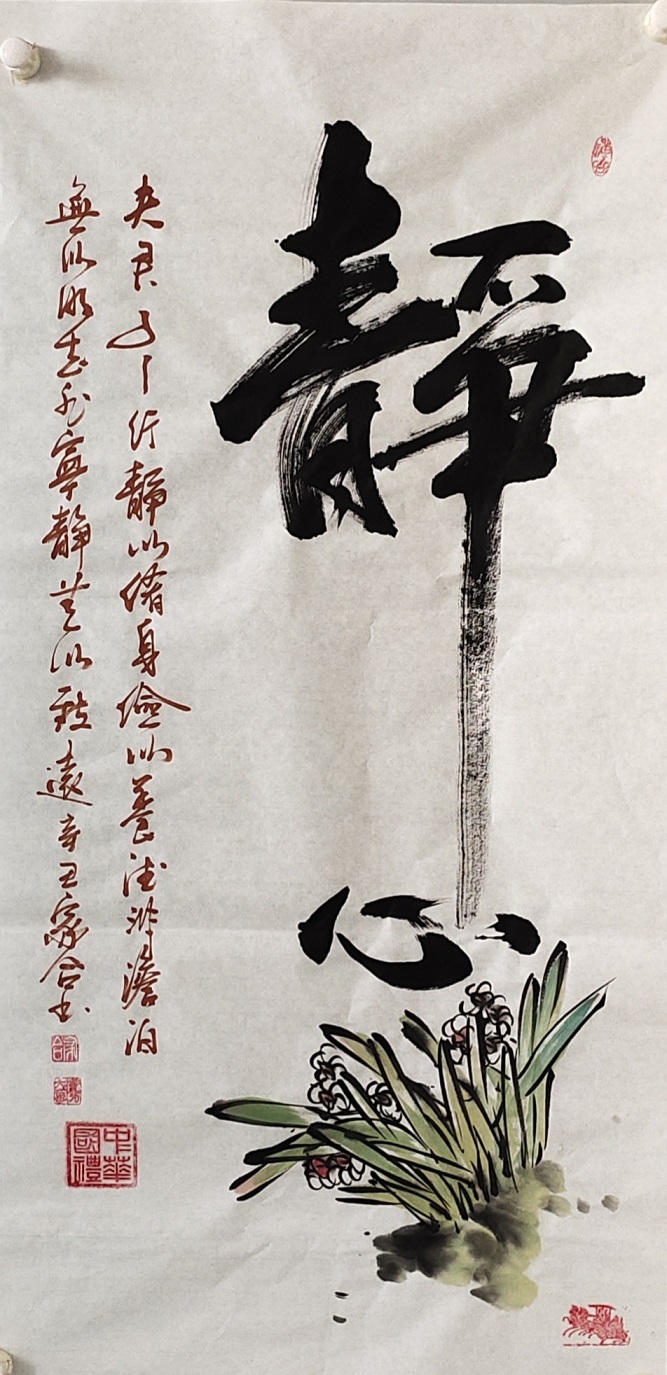 靜心
夫君子之行靜以脩身儉以養德非澹泊
無以明志非寧靜無以致遠辛丑家合書
家合
中華國禮